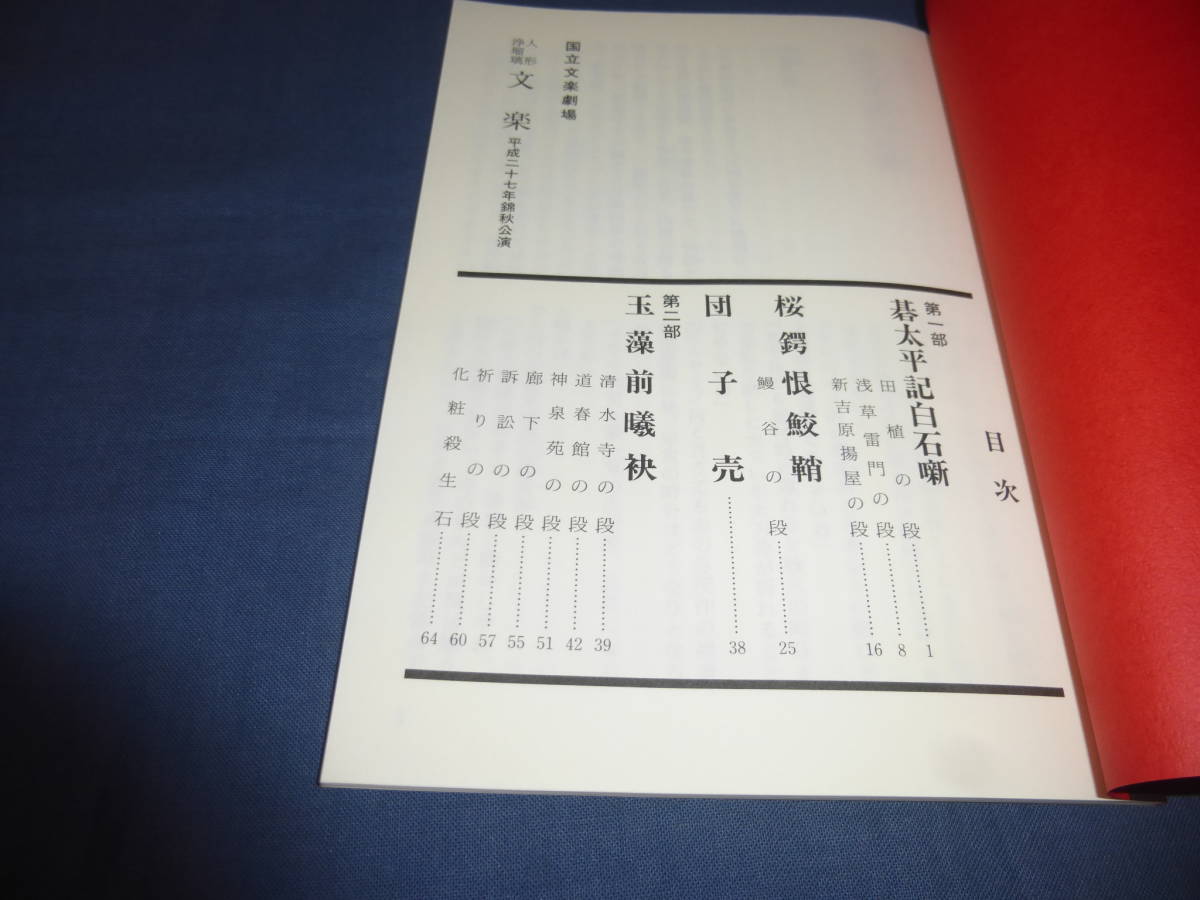 国立文楽劇場
人形
浄瑠璃
文楽 平成二十七年錦秋公演
目次
第一部
碁太平記白石噺
田植の段 1
浅草雷門の段 8
新吉原揚屋の段 16
桜鍔恨鮫鞘
鰻谷の段 25
団子売 38
第二部
玉藻前曦袂
清水寺の段 39
道春館の段 42
神泉苑の段 51
廊下の段 55
訴訟の段 57
祈りの段 60
化粧殺生石 64